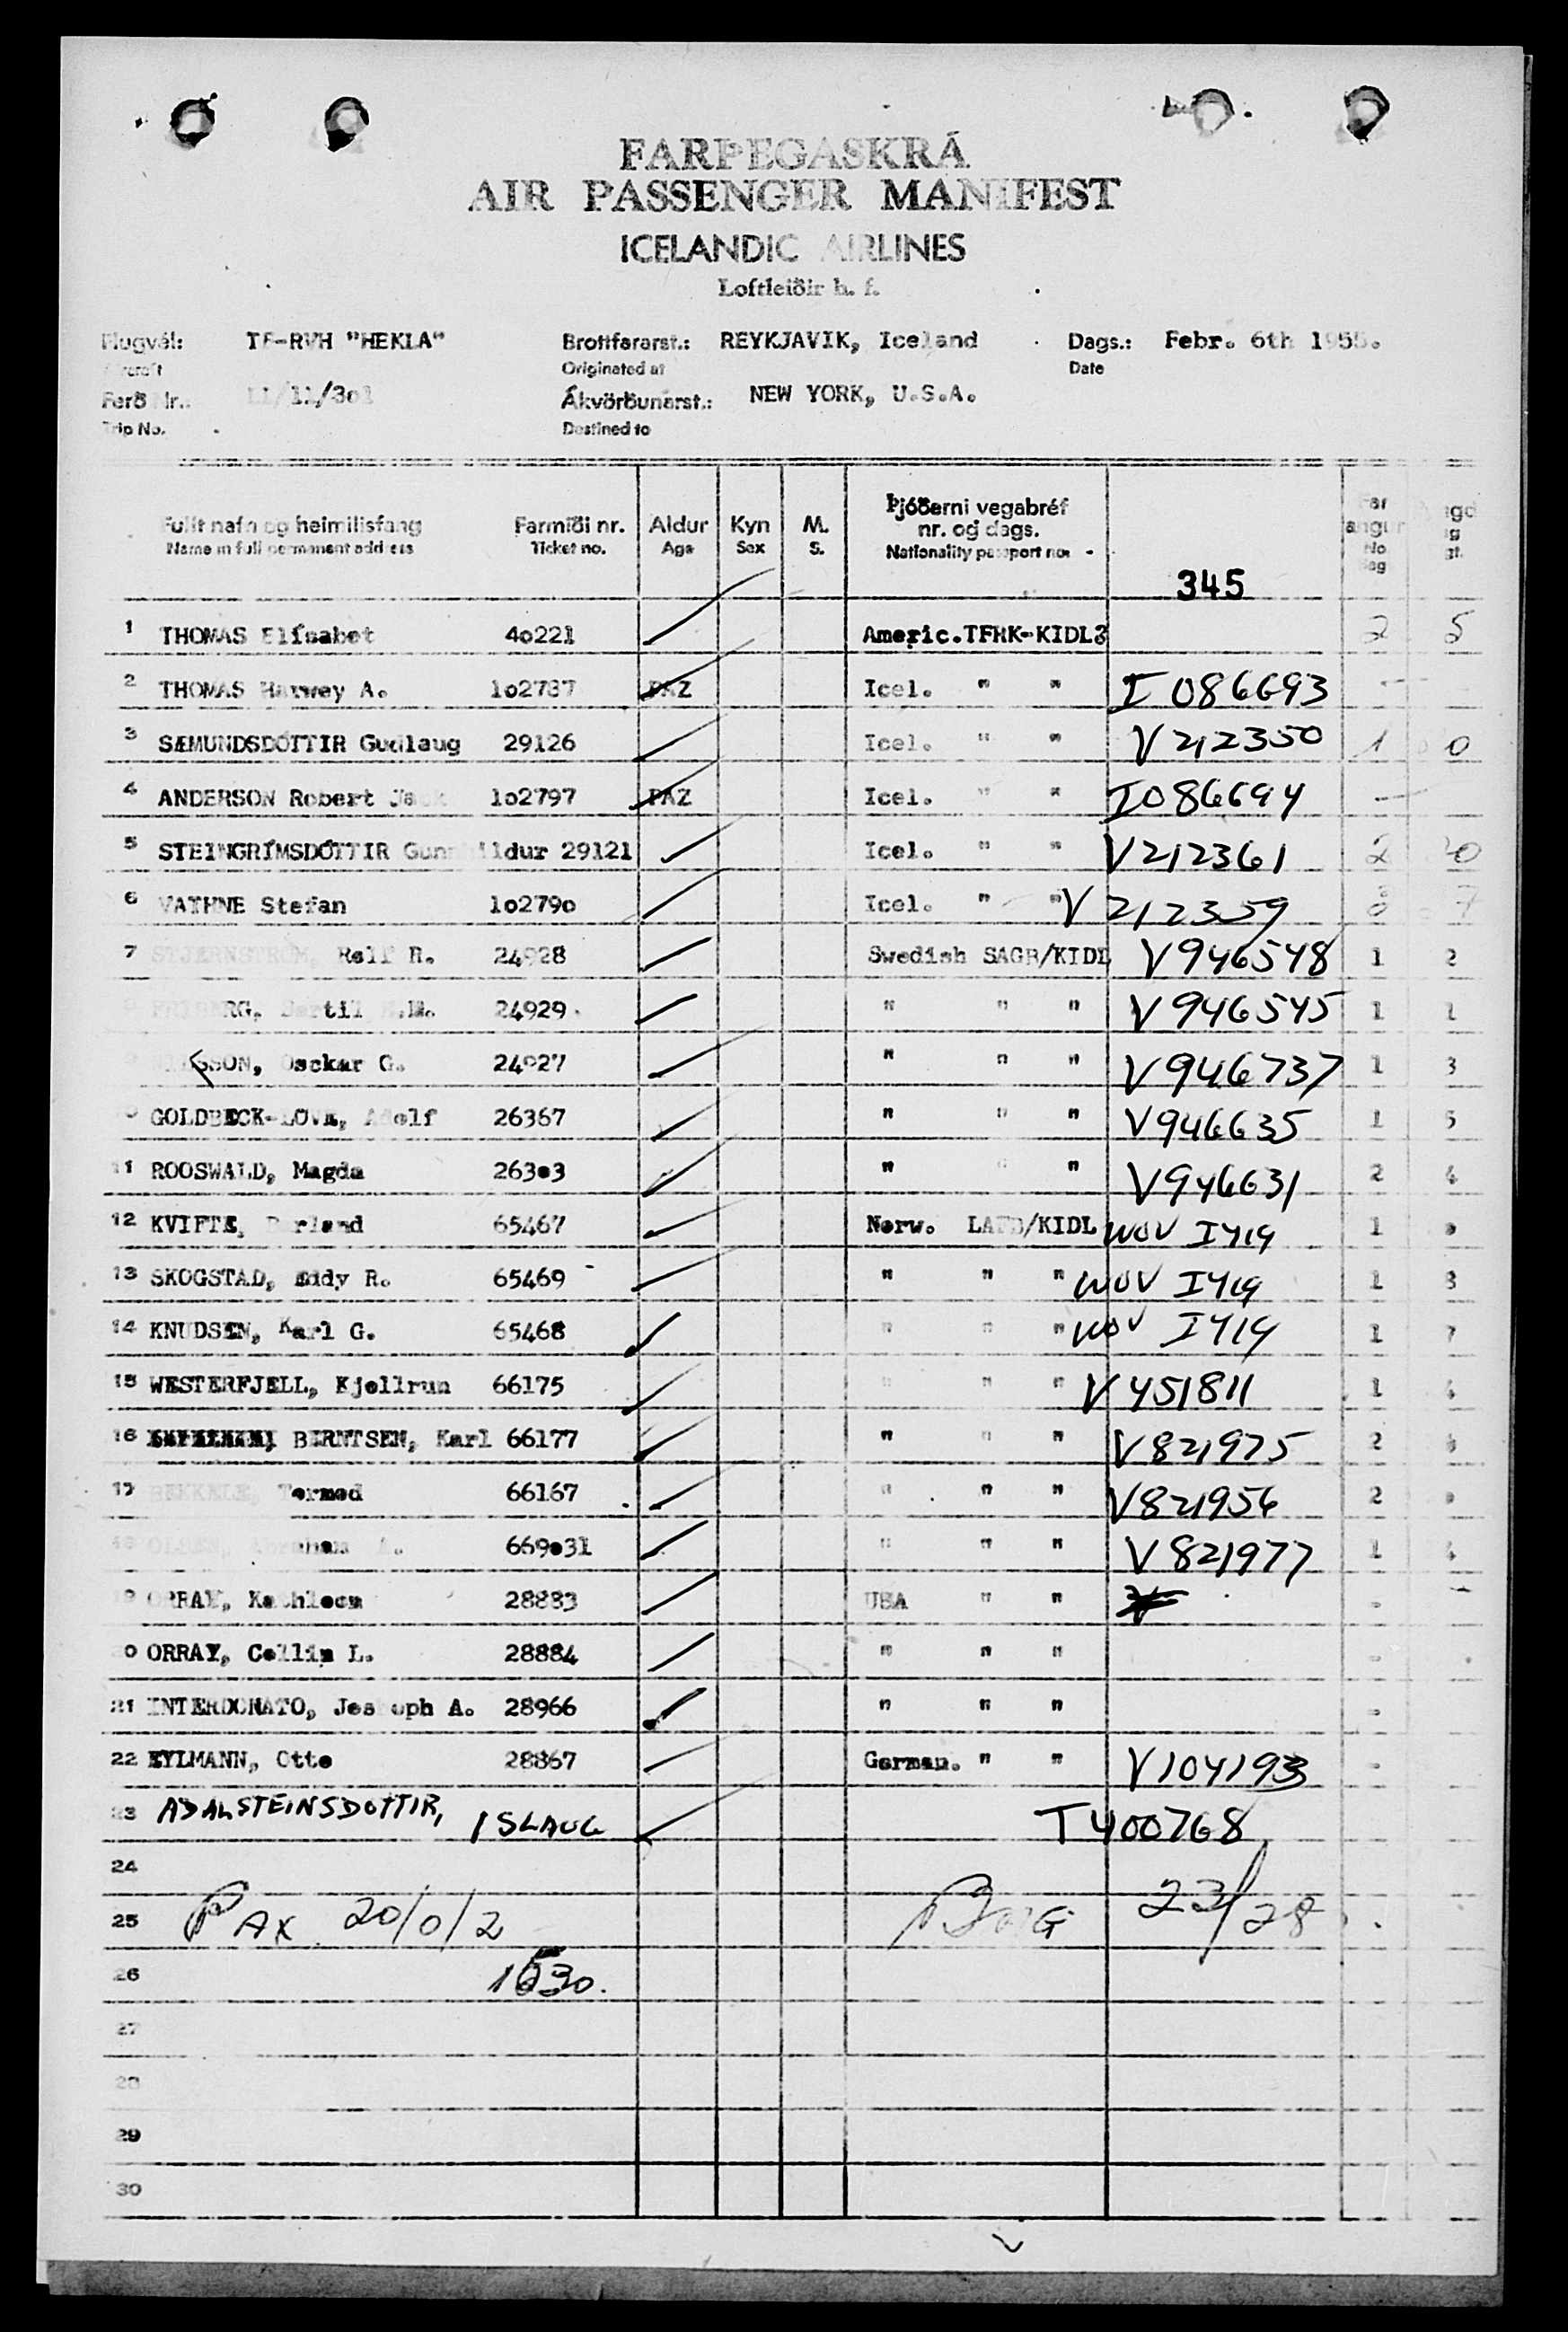 FARÞEGASKRÁ
AIR PASSENGER MANIFEST
ICELANDIC AIRLINES
Loftleiðir h. f.
Flugvél: TF-RVH "HEKLA" Brottfararst.: REYKJAVIK, Iceland Dags.: Febr. 6th 1955.
Aircraft Originated at Date
Ferð Nr.: 11/11/3o1 Ákvörðunarst.: NEW YORK, U.S.A.
Trip No. Destined to
Fullt nafn og heimilisfang Farmiði nr. Aldur Kyn M. Þjóðerni vegabréf
Name in full permanent address Ticket no. Age Sex S. nr. og dags.
Nationality passport no.
345
1 THOMAS Elísabet 4o221 Americ. TFRK-KIDL3 2 5
2 THOMAS Harwey A. 1o2787 PAZ Icel. " " I 086693
3 SÆMUNDSDÓTTIR Gudlaug 29126 Icel. " " V 212350 1
4 ANDERSON Robert Jack 1o2797 PAZ Icel. " " I086694
5 STEINGRÍMSDÓTTIR Gunnhildur 29121 Icel. " " V212361 2
6 VATHNE Stefan 1o279o Icel. " " V 212359 7
7 STJERNSTROM, Rolf R. 24928 Swedish SAGB/KIDL V946548 1 2
Bertil 24929 " " " V946545 1 1
Osckar G. 24927 " " " V946737 1 3
GOLDBECK-LOVE, Adolf 26367 " " " V946635 1 5
11 ROOSWALD, Magda 263o3 " " " V946631 2 4
12 KVIFTE, 65467 Norw. LATD/KIDL WOV I419 1
13 SKOGSTAD, Eddy R. 65469 " " " WOV I419 1 8
14 KNUDSEN, Karl G. 65468 " " " WOV I419 1 7
15 WESTERFJELL, Kjellrun 66175 " " " V451811 1
16 BERNTSEN, Karl 66177 " " " V821975 2
17 Tormod 66167 " " " V821956 2
18 OLSEN, Abraham 669o31 " " " V821977 1
19 ORRAY, Kathleen 28883 USA " " -
20 ORRAY, Collin L. 28884 " " " -
21 INTERDONATO, Joseph A. 28966 " " " -
22 EYLMANN, Otto 28867 German. " " V104193 -
23 ADALSTEINSDOTTIR, ISLAUG T400768
24
25 PAX 20/0/2 BAG 23/28
26 1530.
27
28
29
30